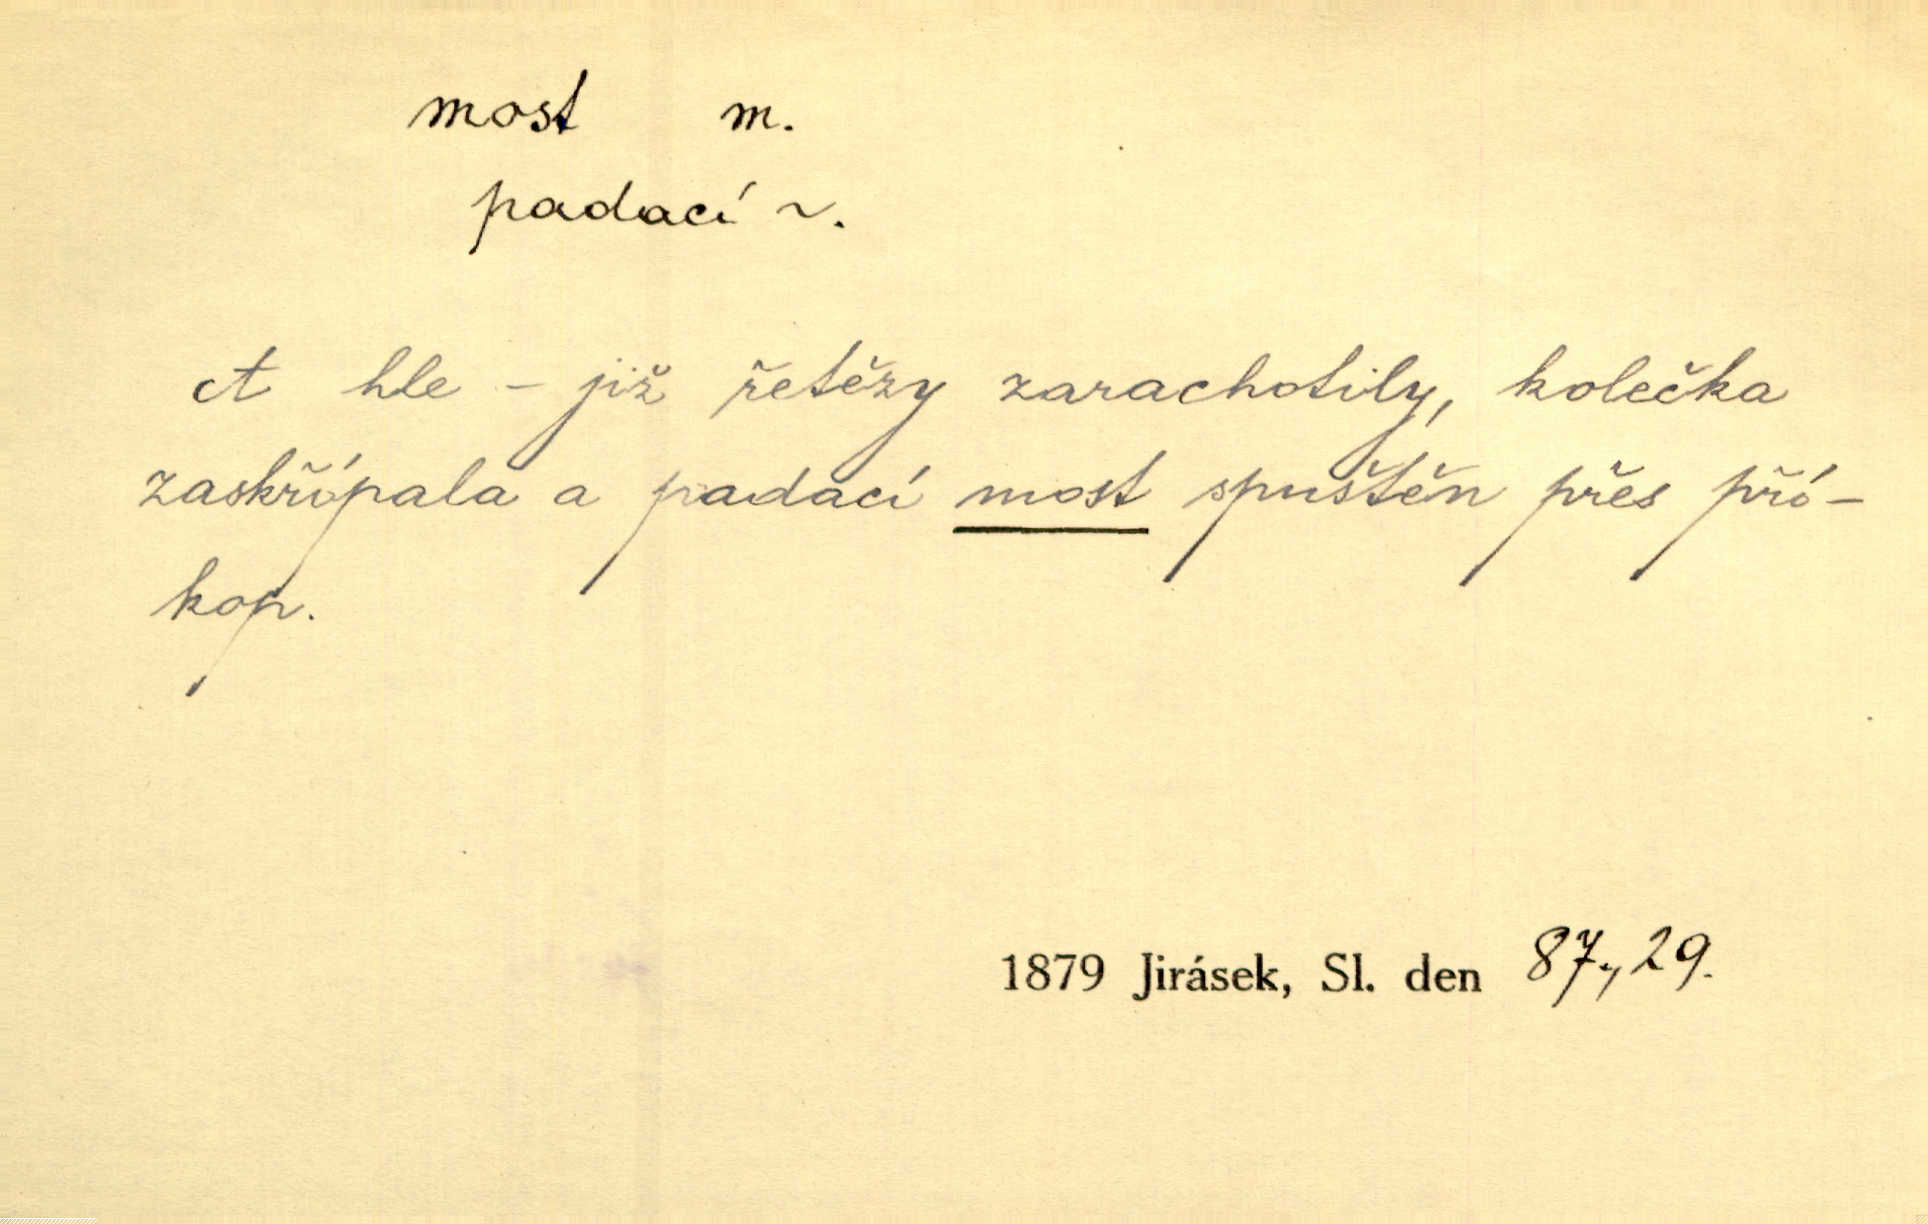 most m.
padací ~.
A hle – již řetězy zarachotily, kolečka
zaskřípala a padací most spuštěn přes pří-
kop.
1879 Jirásek, Sl. den 87., 29.